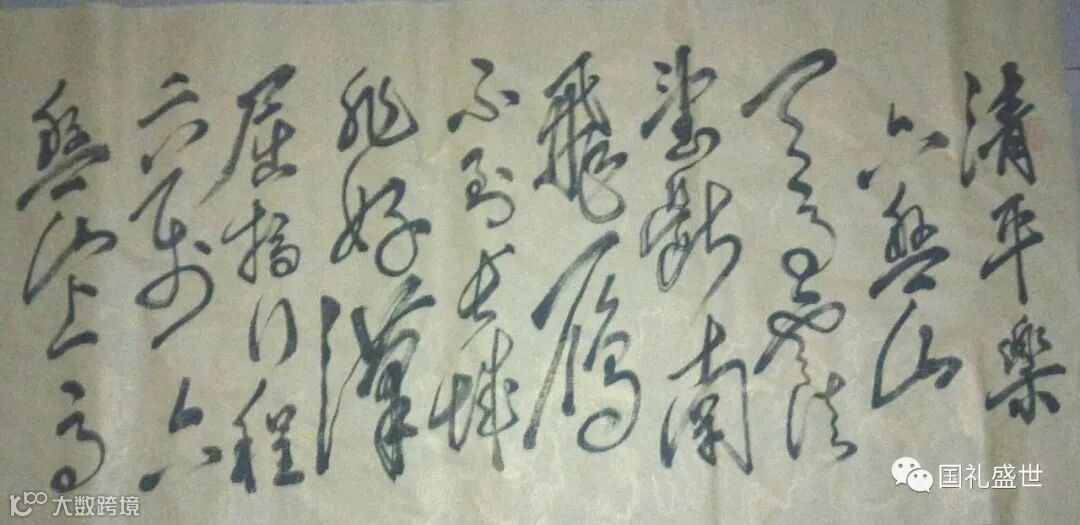 清平樂
六盤山
天高雲淡
望斷南
飛雁
不到長城
非好漢
屈指行程
二萬六
盤山上高
国礼盛世
大数跨境